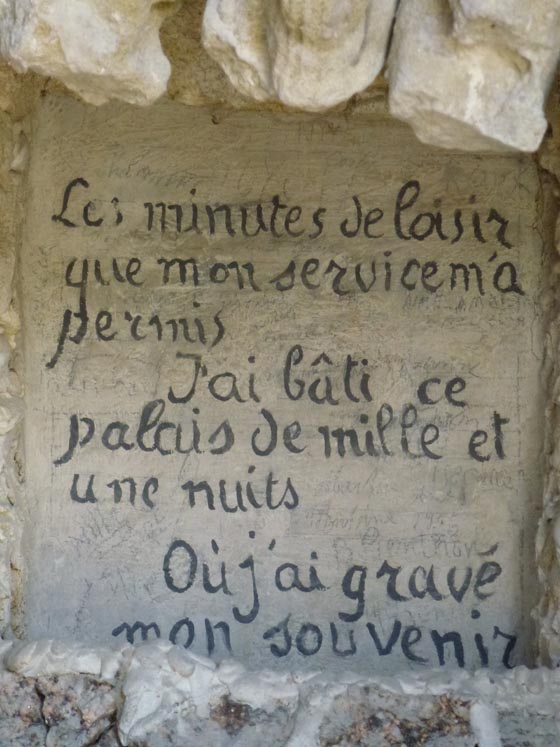 Les minutes de loisir
que mon service m'a
permis
J'ai bâti ce
palais de mille et
une nuits
Où j'ai gravé
mon souvenir